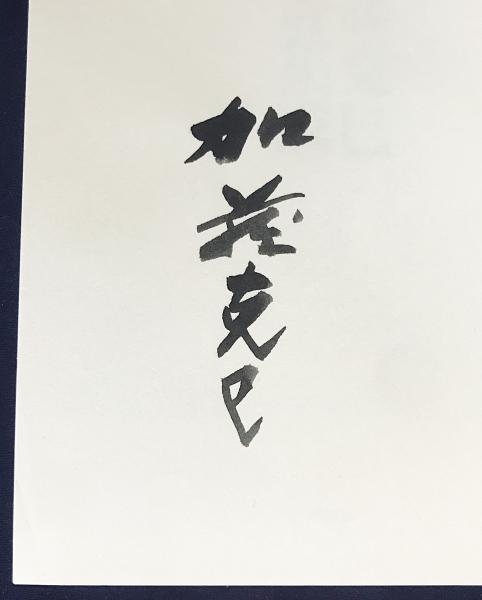 加藤克巳